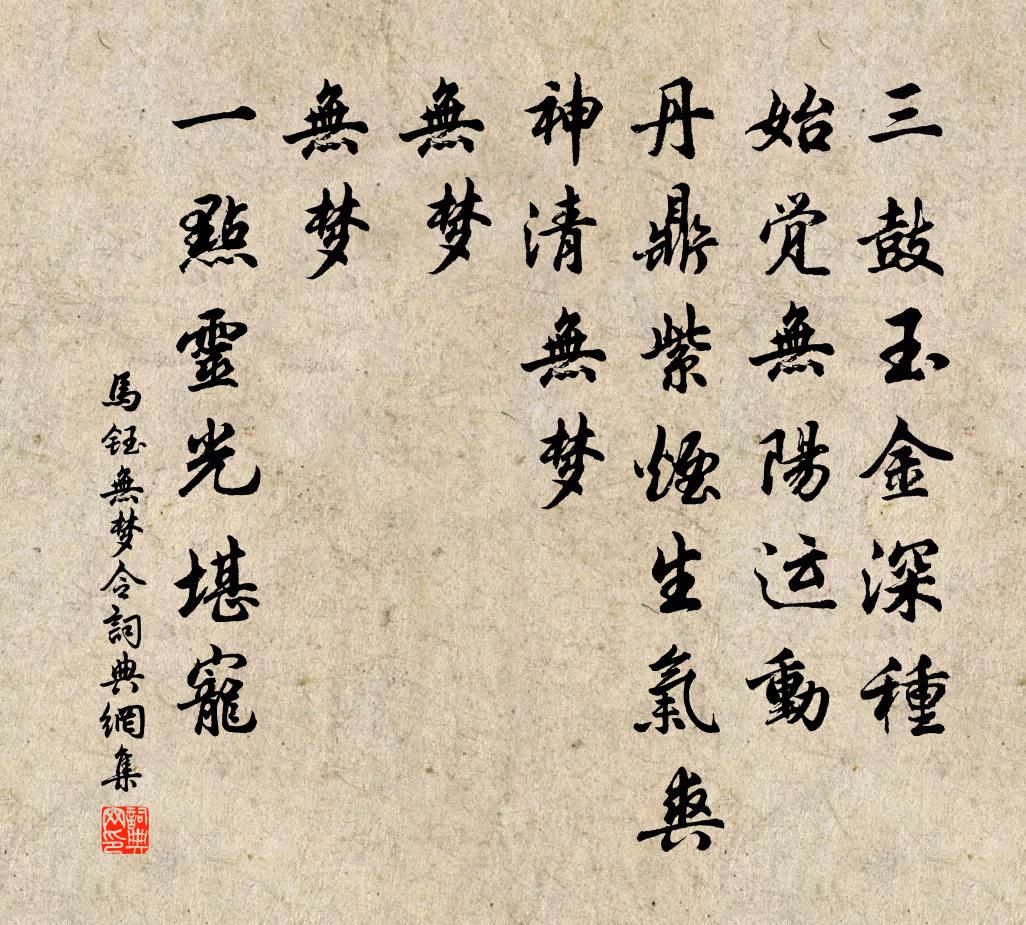 三鼓玉金深種
始觉無陽运動
丹鼎紫煙生氣爽
神清無梦
無梦
無梦
一點靈光堪寵
馬鈺無梦令詞典網集
詞典网印